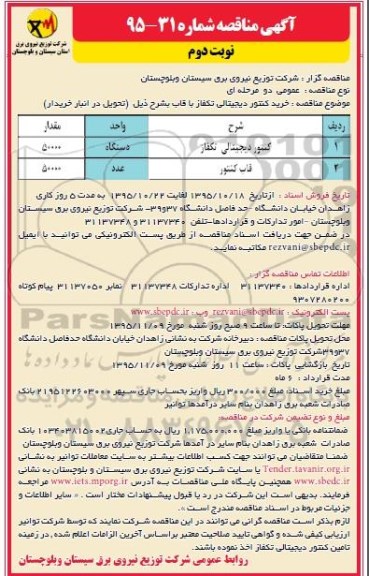 آگهی مناقصه شماره ۳۱-۹۵
نوبت دوم
شرکت توزیع نیروی برق
استان سیستان و بلوچستان
مناقصه گزار : شرکت توزیع نیروی برق سیستان وبلوچستان
نوع مناقصه : عمومی دو مرحله ای
موضوع مناقصه : خرید کنتور دیجیتالی تکفاز با قاب بشرح ذیل (تحویل در انبار خریدار)
ردیف شرح واحد مقدار
۱ کنتور دیجیتالی تکفاز دستگاه ۵۰۰۰۰
۲ قاب کنتور عدد ۵۰۰۰۰
تاریخ فروش اسناد : ازتاریخ ۱۳۹۵/۱۰/۱۸ لغایت ۱۳۹۵/۱۰/۲۲ به مدت ۵ روز کاری
زاهدان خیابان دانشگاه حد فاصل دانشگاه ۳۷و۳۹- شرکت توزیع نیروی برق سیستان
وبلوچستان -امور تدارکات و قراردادها-تلفن ۳۱۱۳۷۳۴۰ و ۳۱۱۳۷۳۴۸
در ضمن جهت دریافت اسناد مناقصه از طریق پست الکترونیکی می توانید با ایمیل
rezvani@sbepdc.ir مکاتبه نمایید.
اطلاعات تماس مناقصه گزار :
اداره قراردادها : ۳۱۱۳۷۳۴۰ اداره تدارکات ۳۱۱۳۷۳۴۸ نمابر ۳۱۱۳۷۰۵۰ پیام کوتاه
۹۳۰۷۲۸۰۲۰۰
پست الکترونیک : rezvani@sbepdc.ir وب : www.sbepdc.ir
مهلت تحویل پاکات: تا ساعت ۹ صبح روز شنبه مورخ ۱۳۹۵/۱۱/۰۹
محل تحویل پاکات مناقصه : دبیرخانه شرکت به نشانی زاهدان خیابان دانشگاه حدفاصل دانشگاه
۳۷و۳۹شرکت توزیع نیروی برق سیستان وبلوچستان
تاریخ بازگشایی پاکات : ساعت ۱۱ روز شنبه مورخ ۱۳۹۵/۱۱/۰۹
مدت قرارداد : ۶ ماه
مبلغ خرید اسناد: مبلغ ۳۰۰/۰۰۰ ریال واریز بحساب جاری سپهر بانک
صادرات شعبه برق زاهدان بنام سایر درآمدها توانیر
مبلغ و نوع تضمین شرکت در مناقصه:
ضمانتنامه بانکی یا واریز مبلغ ۱.۱۷۵.۰۰۰.۰۰۰ ریال به حساب جاری بانک
صادرات شعبه برق زاهدان بنام سایر در آمدها شرکت توزیع نیروی برق سیستان وبلوچستان
ضمنا متقاضیان می توانند جهت کسب اطلاعات بیشتر به سایت معاملات توانیر به نشانی
Tender.tavanir.org.ir یا سایت شرکت توزیع نیروی برق سیستان و بلوچستان به نشانی
www.sbedc.ir همچنین پایگاه ملی مناقصات به آدرس www.iets.mporg.ir مراجعه
فرمایند. بدیهی است این شرکت در رد یا قبول پیشنهادات مختار است . * سایر اطلاعات و
جزئیات مربوط در اسناد مناقصه مندرج است *.
لازم بذکر است مناقصه گرانی می توانند در این مناقصه شرکت نمایند که توسط شرکت توانیر
ارزیابی کیفی شده و گواهی تایید صلاحیت معتبر براساس آخرین الزامات اعلام شده ، در زمینه
تامین کنتور دیجیتالی تکفاز اخذ نموده باشند.
روابط عمومی شرکت توزیع نیروی برق سیستان وبلوچستان